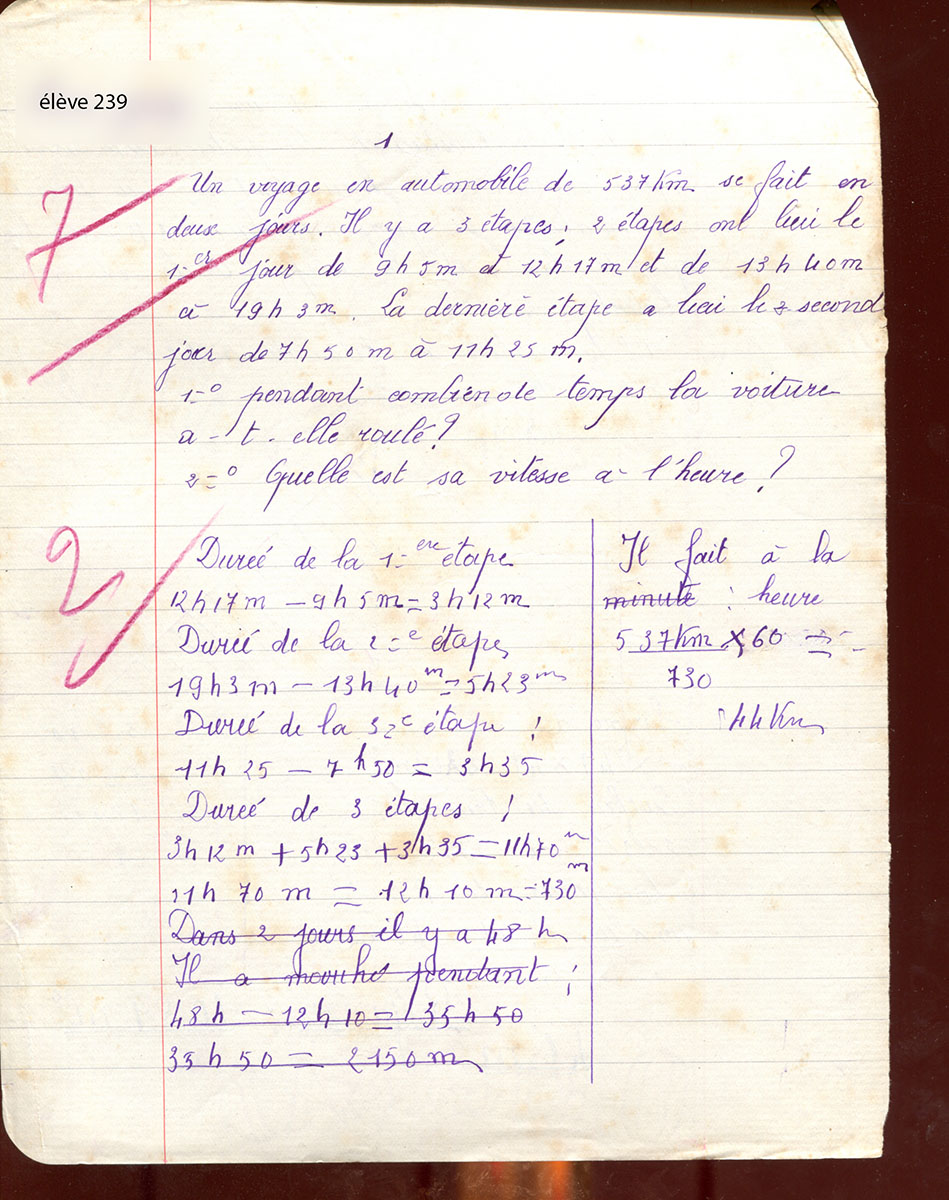 élève 239
1
7
Un voyage en automobile de 537 Km se fait en
deux jours. Il y a 3 étapes ; 2 étapes ont lieu le
1=er jour de 9h5m à 12h17m et de 13h40m
à 19h3m. La dernière étape a lieu le second
jour de 7h50m à 11h25m.
1=o pendant combien de temps la voiture
a-t-elle roulé ?
2=o Quelle est sa vitesse à l'heure ?
2
Dureé de la 1=ere étape
12h17m – 9h5m = 3h12m
Dureé de la 2=e étape
19h3m – 13h40m = 5h23m
Dureé de la 3=e étape :
11h25 – 7h50 = 3h35
Dureé de 3 étapes :
3h12m + 5h23 + 3h35 = 11h70m
11h70m = 12h10m = 730m
Dans 2 jours il y a 48h
Il a marché pendant :
48h – 12h10 = 35h50
35h50 = 2150m
Il fait à la
minute : heure
537Km x 60 =
730
44Km